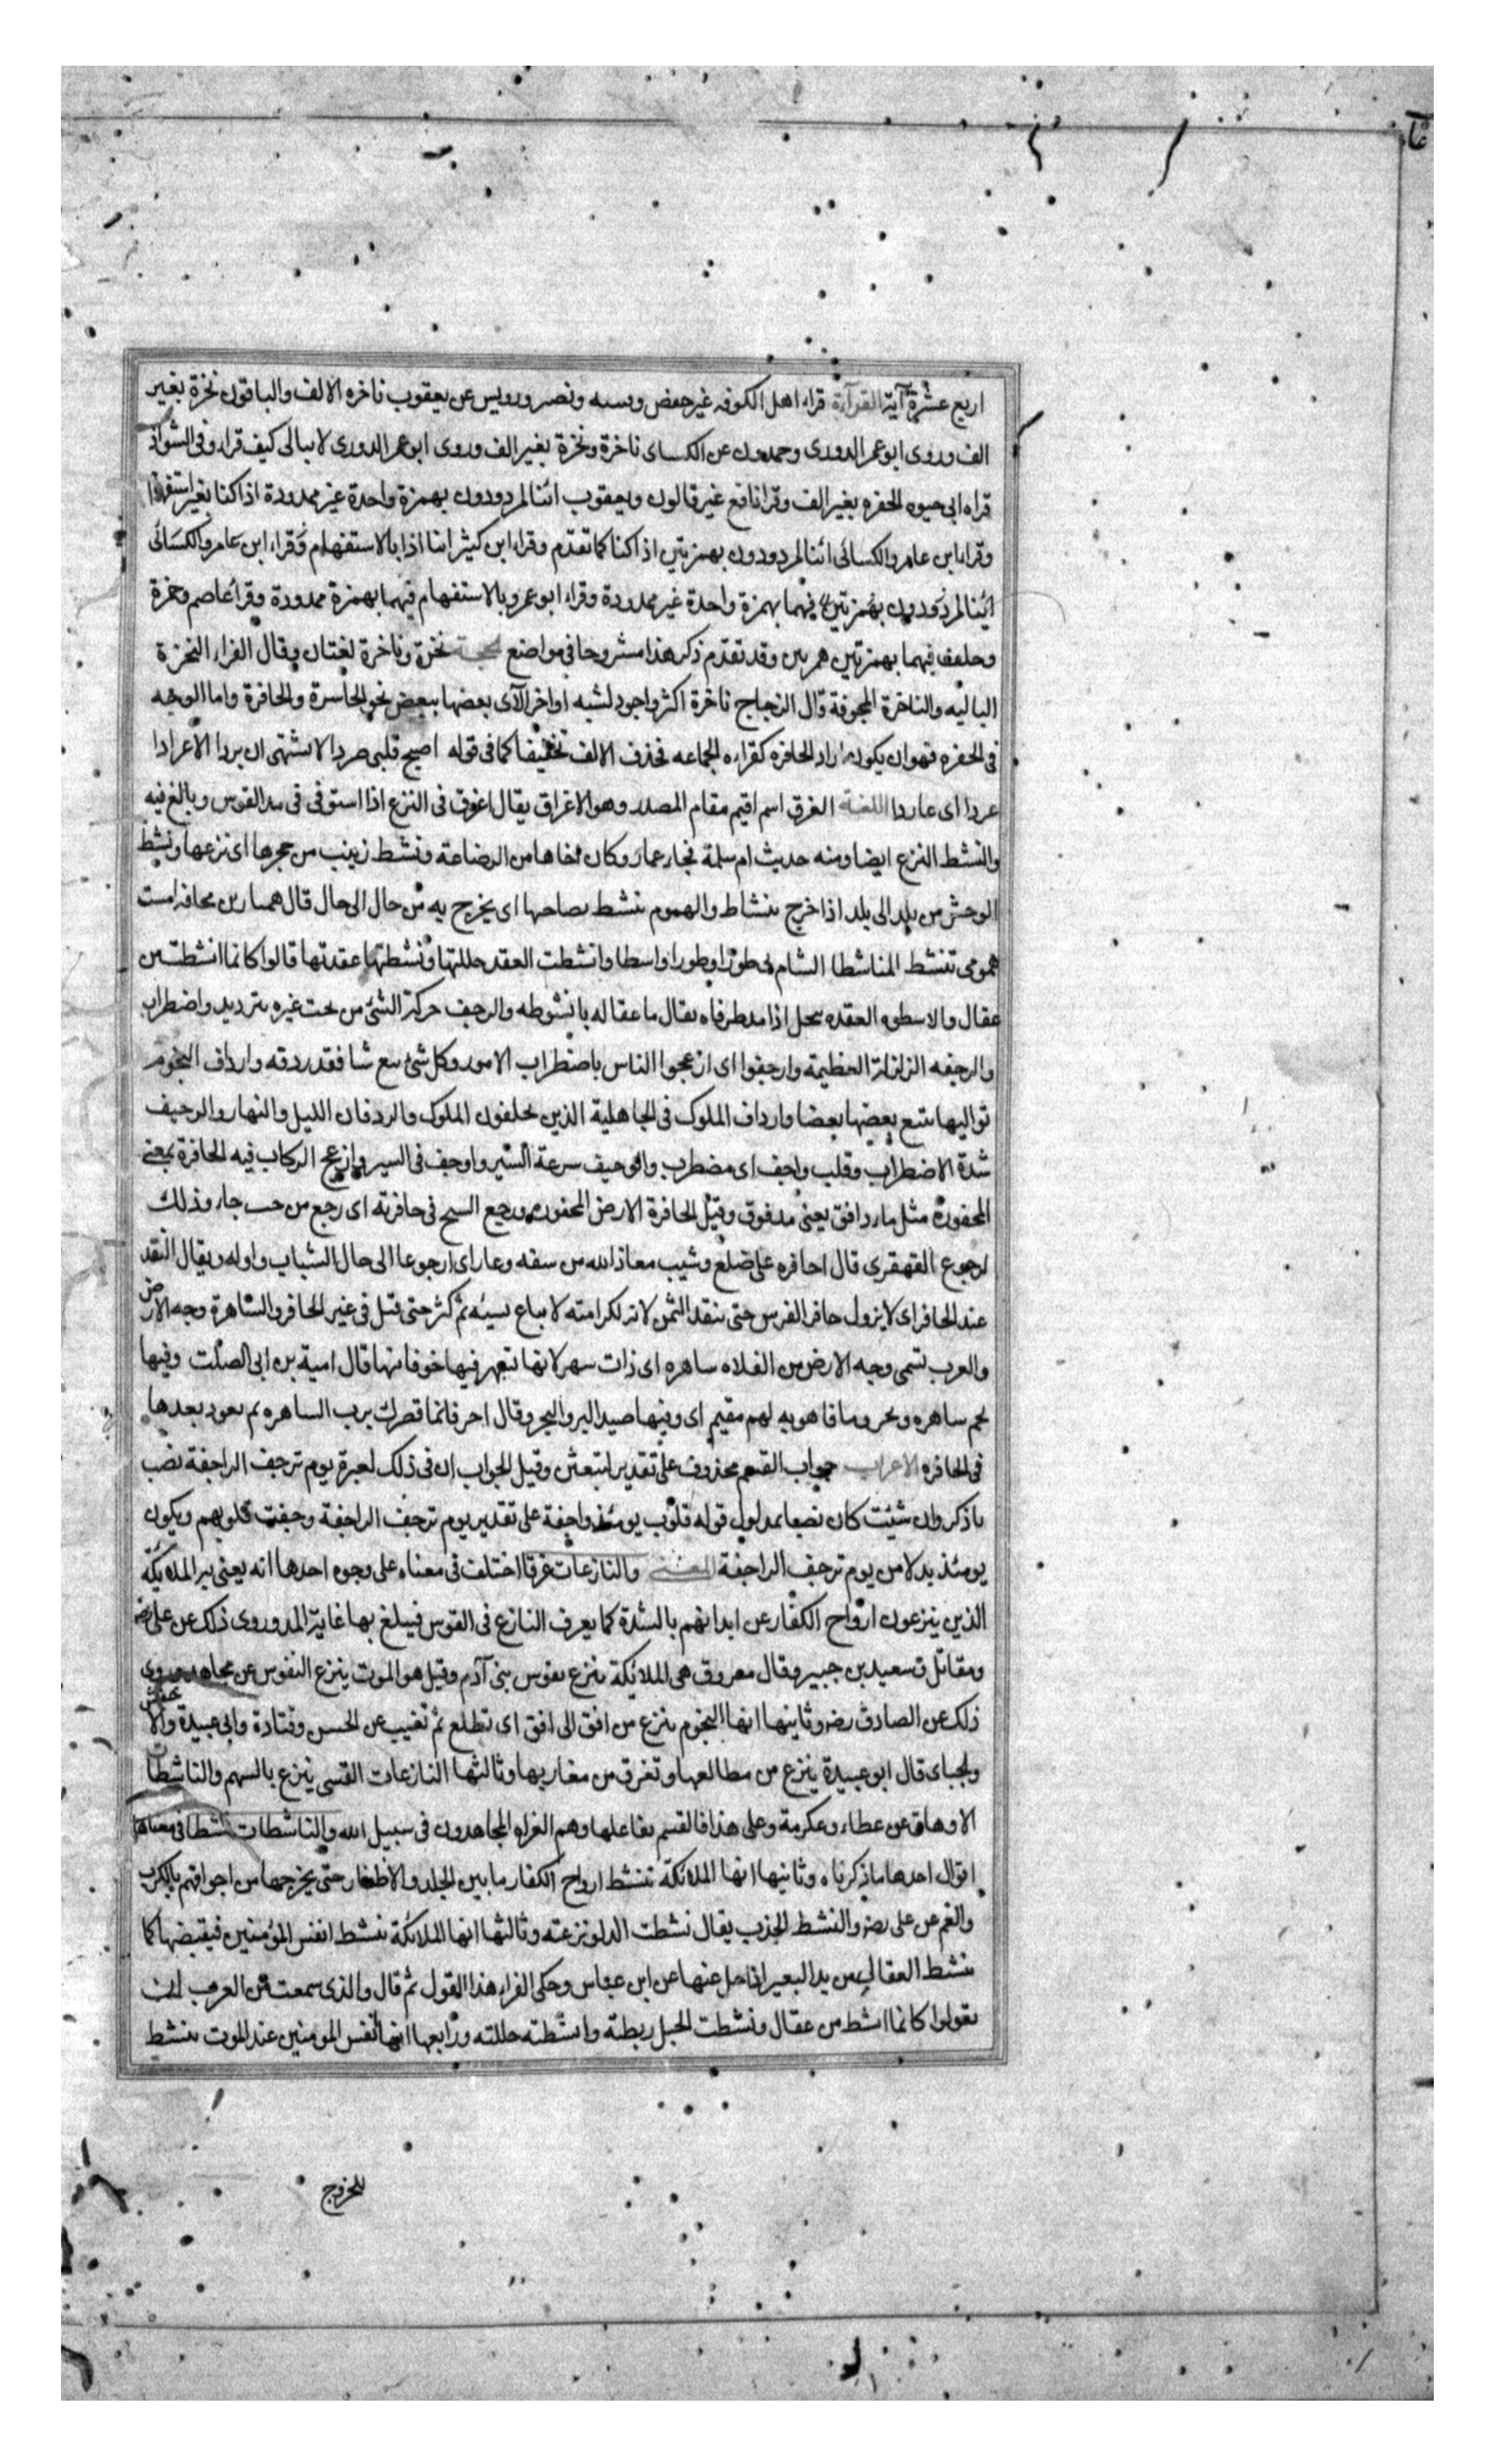 عما
اربع عشرة آية القرآءة قراء اهل الكوفه غير حفص وىسىه ونصر ورويس عن يعقوب ناخره الالف والباقون نخزة بغير
الف وروى ابو عمر الدورى وحمدون عن الكساى ناخرة ونخزة بغير الف وروى ابو عمر الدورى لا يبالى كيف قراء وفى الشواذ
قراه ابى حيوه الحفره بغير الف وقرا نافع غير قالون ويعقوب ائنا لمردودون بهمزة واحدة غير ممدودة اذا كنا بغير استفهام
وقراء ابن عامر والكسائى ائنا لمردودون بهمزتين اذا كنا كما تقدّم وقراء ابن كيثر اىنا اذا بالاستفهام وقراء ابن عامر والكسَائى
ائنا لمردودون بهمزتين فيهما بهمزة واحدة غير ممدودة وقراء ابو عمرو بالاستفهام فيهما بهمزة ممدودة وقرا عاصم وحمزة
وحلف فيهما بهمزتين همزىىں وقد تقدّم ذكر هذا مشروحا فى مواضع الحجة نخزة وناخرة لغتان وقال الفراء النخرة
الباليه والناخرة المجوفة قال الزجاج ناخرة اكثر واجود لشبه اواخر الآى بعضها ببعض نحو الخاسرة والحافرة واما الوجه
فى الحفره فهو ان يكون اراد الحافره كقراءه الجماعه فحذف الالف تخفيفا كما فى قوله اصبح قلبى صردا لا يشتهى ان يردا الا عرادا
عردا اى عاردا اللغة الغرق اسم اقيم مقام المصدر وهو الاغراق يقال اغرق فى النزع اذا استوفى فى مد القوس وبالغ فيه
والنشط النزع ايضا ومنه حديث ام سلمة فجاء عمار وكان اخاها من الرضاعة ونشط زينب من حجرها اى نزعها ونشط
الوحش من بلد الى بلد اذا خرج بنشاط والهموم تنشط بصاحبها اى يخرج به من حال الى حال قال همىار بن محافه امست
همومى تنشط المناشطا الشام بى طورا وطورا واسطا وانشطت العقد حللتها ونشطتها عقدتها قالوا كانما انشطت من
عقال والاسطوه العقده ىىحل اذا مد طرفاه يقال ما عقاله بانشوطه والرجف حركة الشئ من تحت غيره بترديد واضطراب
والرجفه الزلزلة العظيمة وارجفوا اى ازعجوا الناس باضطراب الامور وكل شئ تبع شيا فقد ردفه وارداف النجوم
تواليها يتبع بعضها بعضا وارداف الملوك فى الجاهلية الذين يخلفون الملوك والردفان الليل والنهار والوجيف
شدة الاضطراب وقلب واجف اى مضطرب والوجيف سرعة السّير واوجف فى السير وازعج الركاب فيه الحافرة بمعنى
المحفورة مثل ماء دافق يعنى مدفوق وقيل الحافرة الارض المحفوره ورجع الشيخ فى حافرته اى رجع من حيث جاء وذلك
لرجوع القهقرى قال احافره على ضلع وشيب معاذ الله من سفه وعار اى ارجوعا الى حال الشباب واوله ويقال النقد
عند الحافر اى لا يزول حافر الفرس حتى ينقد الثمن لانه لكرامته لا يباع نسيئه ثم كثر حتى قيل فى غير الحافر والساهرة وجه الارض
والعرب تسمى وجه الارض من الفلاه ساهره اى ذات سهر لانها تسهر فيها خوفا منها قال امية بن ابى الصلت وفيها
لحم ساهره وبحر وما فاهو به لهم مقيم اى وفيها صيد البر والبحر وقال اخر فانما قصرك ترب الساهره ثم تعود بعدها
فى الحافره الاعراب جواب القسم محذوف على تقدير لتبعثن وقيل الجواب ان فى ذلك لعبرة يوم ترجف الراجفة نصب
باذكر وان شئت كان نصبا بمدلول قوله قلوب يومئذ واجفة على تقدير يوم ترجف الراجفة وجفت قلوبهم ويكون
يومئذ بدلا من يوم ترجف الراجفة المعنى والنازعات غرقا اختلف فى معناه على وجوه احدها انه يعنى به الملايكة
الذين ينزعون ارواح الكفار عن ابدانهم بالشدة كما يعرف النازع فى القوس فيبلغ بها غاية المد وروى ذلك عن على رضه
ومقاتل وسعيد بن جبير وقال مسروق هى الملائكة تنزع نفوس بنى آدم وقيل هو الموت ينزع النفوس عن مجاهد وروى
ذلك عن الصادق رضه وثانيها انها النجوم ينزع من افق الى افق اى تطلع ثم تغيب عن الحسن وقتادة وابى عبيدة والاخفش
ولجباى قال ابو عبيدة ينزع من مطالعها وتغرق من مغاربها وثالثها النازعات القسى ينزع بالسهم والناشطات
الاوهاق عن عطاء وعكرمة وعلى هذا فالقسم بفاعلها وهم الغزاه المجاهدون فى سبيل الله والناشطات نشطا فى معناها
اقوال احدها ما ذكرناه وثانيها انها الملائكة تنشط ارواح الكفار ما بين الجلد والاظفار حتى يخرجها من اجوافهم بالكرب
والغم عن على رضه والنشط الجذب يقال نشطت الدلو نزعته وثالثها انها الملائكة تنشط انفس المؤمنين فيقبضها كما
تنشط العقال من يد البعير اذا حل عنها عن ابن عباس وحكى الفراء هذا القول ثم قال والذى سمعت من العرب ان
يقولوا كانما انشط من عقال ونشطت الحبل ربطته وانشطته حللته ورابعها انها انفس المومنين عند الموت تنشط
للخروج